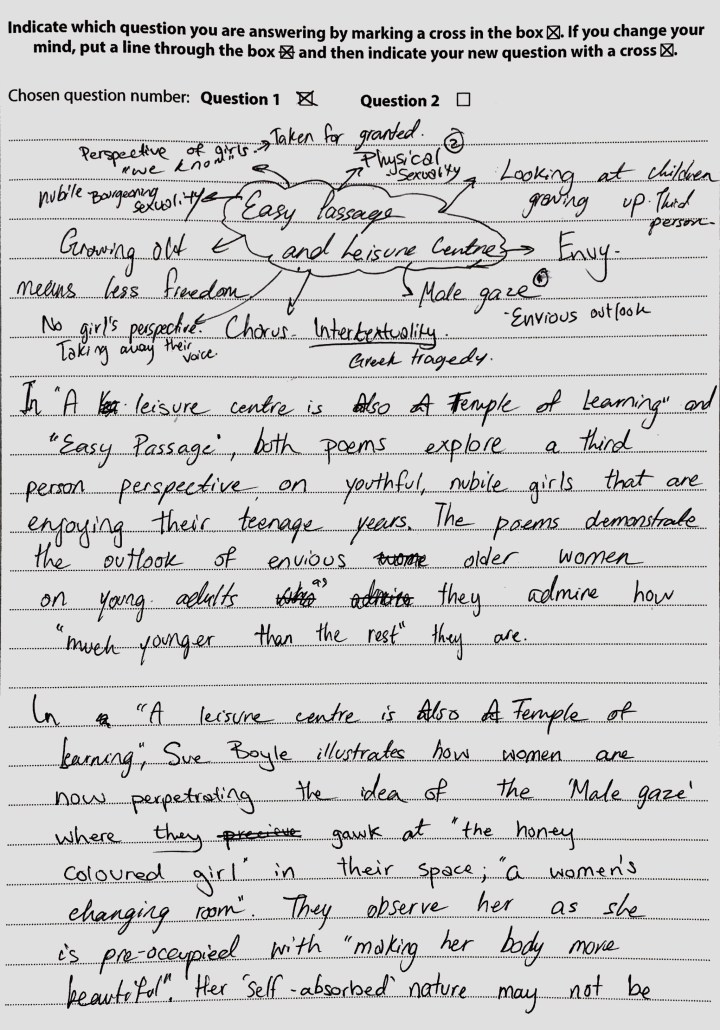 Indicate which question you are answering by marking a cross in the box ☒. If you change your
mind, put a line through the box ☒ and then indicate your new question with a cross ☒.
Chosen question number: Question 1 ☒ Question 2 ☐
Taken for granted.
Perspective of girls.
"we know"
Physical ②
Sexuality
Looking at children
growing up. Third
person.
nubile Bourgeoning
sexuality
Easy Passage
and Leisure Centre
Envy.
Growing old
means less freedom
Male gaze
-Envious outlook
No girl's perspective.
Taking away their
voice.
Chorus. Intertextuality.
Greek tragedy.
In "A leisure centre is Also A Temple of Learning" and
"Easy Passage", both poems explore a third
person perspective on youthful, nubile girls that are
enjoying their teenage years. The poems demonstrate
the outlook of envious older women
on young adults as they admire how
"much younger than the rest" they are.
In "A leisure centre is Also A Temple of
learning", Sue Boyle illustrates how women are
now perpetrating the idea of the 'Male gaze'
where they gawk at "the honey
coloured girl" in their space; "a women's
changing room". They observe her as she
is pre-ocupied with "making her body more
beautiful". Her 'self-absorbed' nature may not be